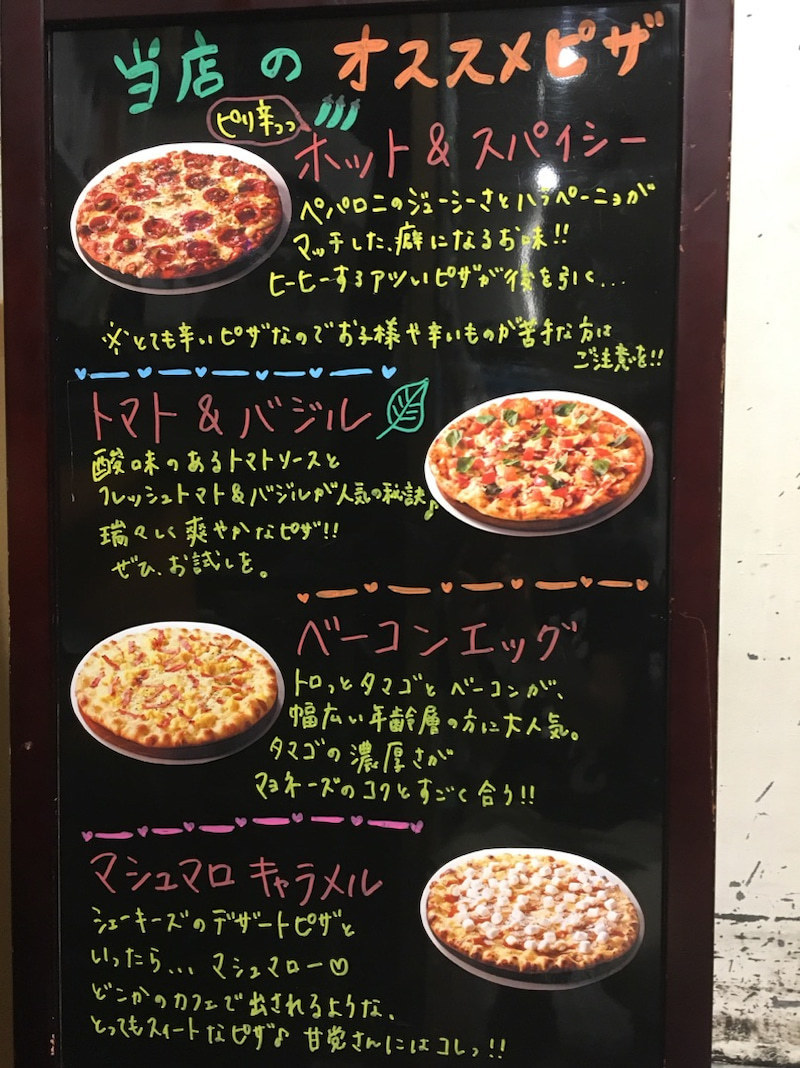 当店のオススメピザ
ピリ辛っっ
ホット&スパイシー
ペパロニのジューシーさとハラペーニョが
マッチした、癖になるお味!!
ヒーヒーするアツいピザが後を引く...
※とても辛いピザなのでお子様や辛いものが苦手な方は
ご注意を!!
トマト&バジル
酸味のあるトマトソースと
フレッシュトマト&バジルが人気の秘訣♪
瑞々しく爽やかなピザ!!
ぜひ、お試しを。
ベーコンエッグ
トロっとタマゴとベーコンが、
幅広い年齢層の方に大人気。
タマゴの濃厚さが
マヨネーズのコクとすごく合う!!
マシュマロキャラメル
シェーキーズのデザートピザと
いったら... マシュマロー♡
どこかのカフェで出されるような、
とってもスイートなピザ♪ 甘党さんにはコレっ!!